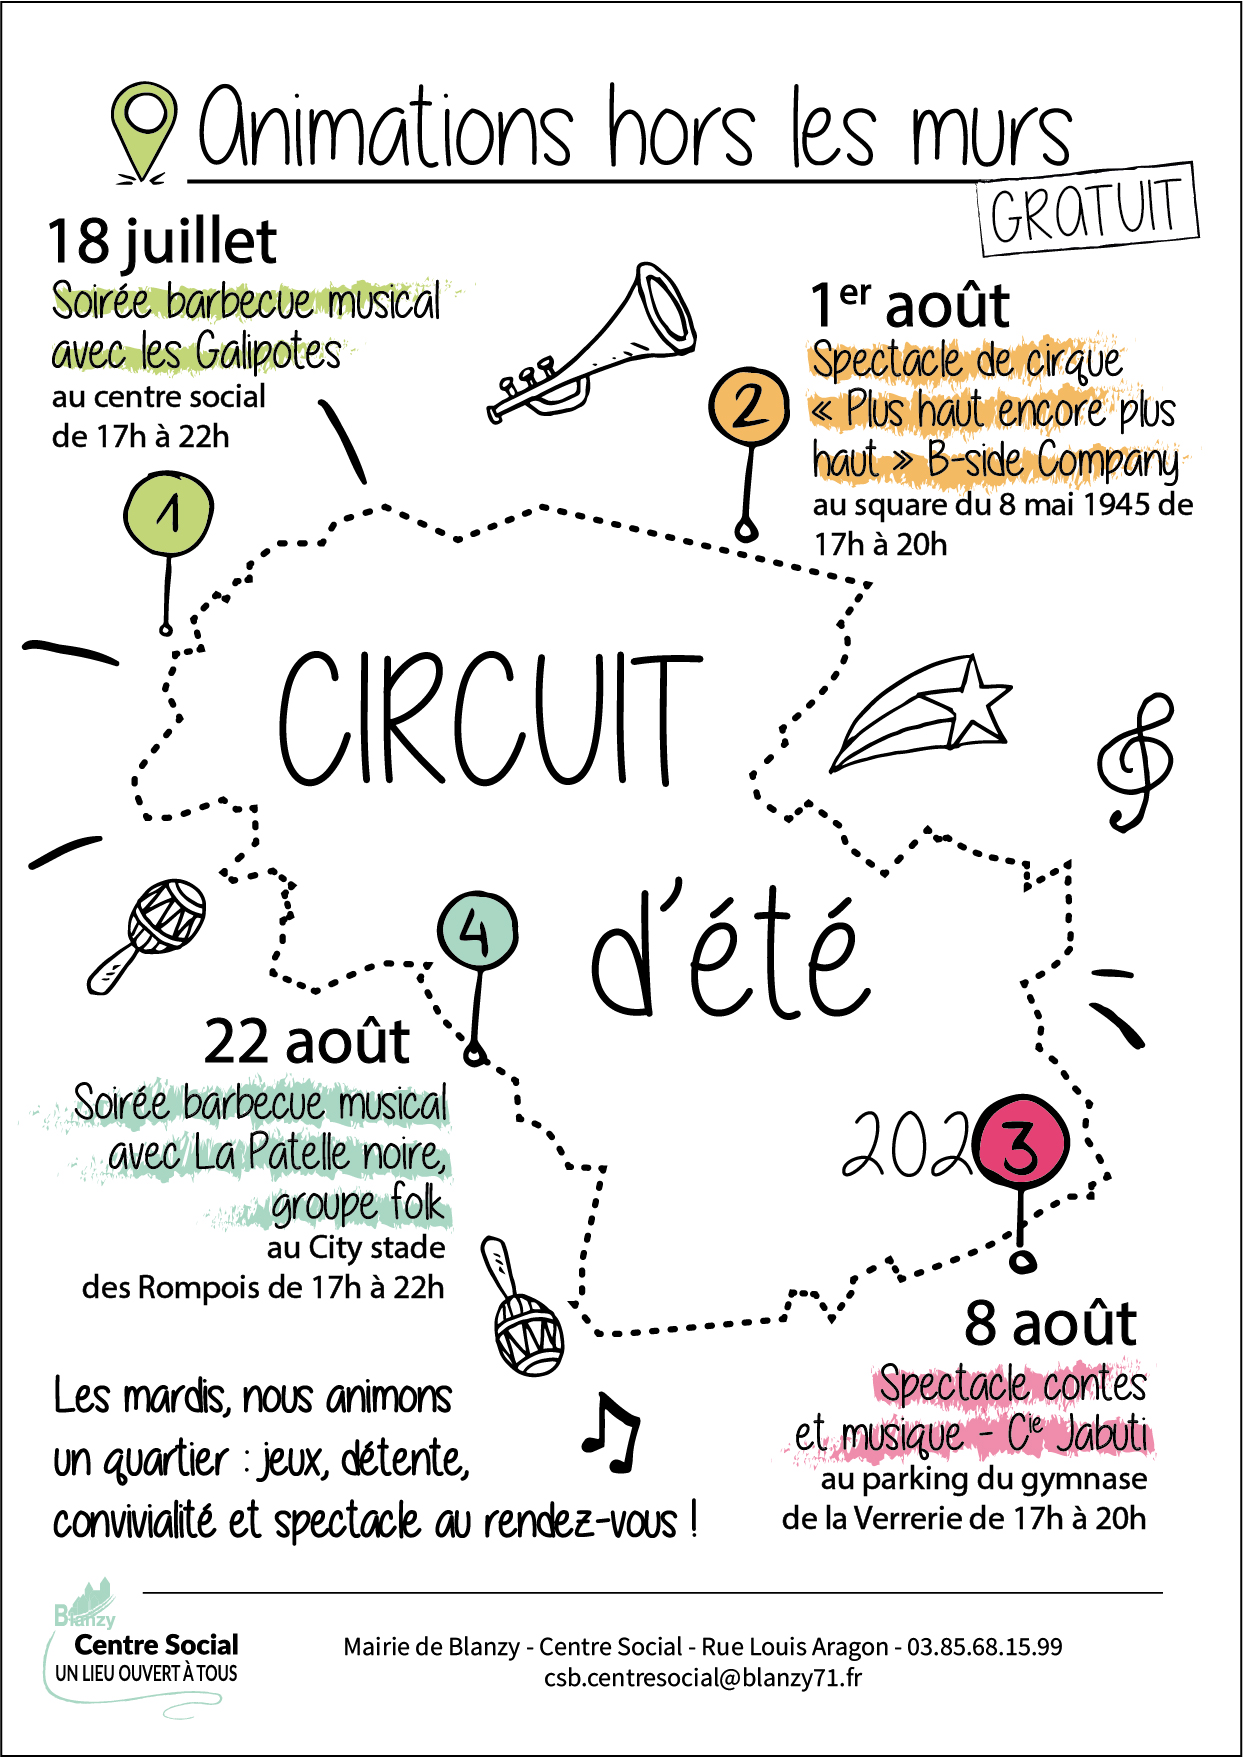 Animations hors les murs
GRATUIT
18 juillet
Soirée barbecue musical
avec les Galipotes
au centre social
de 17h à 22h
1
1er août
Spectacle de cirque
« Plus haut encore plus
haut » B-side Company
au square du 8 mai 1945 de
17h à 20h
2
CIRCUIT
d'été
2023
4
22 août
Soirée barbecue musical
avec La Patelle noire,
groupe folk
au City stade
des Rompois de 17h à 22h
8 août
Spectacle contes
et musique - Cie Jabuti
au parking du gymnase
de la Verrerie de 17h à 20h
Les mardis, nous animons
un quartier : jeux, détente,
convivialité et spectacle au rendez-vous !
Blanzy
Centre Social
UN LIEU OUVERT À TOUS
Mairie de Blanzy - Centre Social - Rue Louis Aragon - 03.85.68.15.99
csb.centresocial@blanzy71.fr